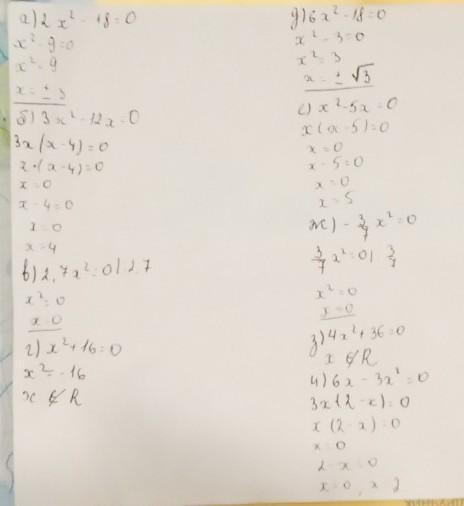 а) 2x² - 18 = 0
x² - 9 = 0
x² = 9
x = ± 3
б) 3x² - 12x = 0
3x (x - 4) = 0
x · (x - 4) = 0
x = 0
x - 4 = 0
x = 0
x = 4
в) 2,7x² = 0 | 2,7
x² = 0
x = 0
г) x² + 16 = 0
x² = -16
x ∉ R
д) 6x² - 18 = 0
x² - 3 = 0
x² = 3
x = ± √3
е) x² - 5x = 0
x (x - 5) = 0
x = 0
x - 5 = 0
x = 0
x = 5
ж) - 3/7 x² = 0
3/7 x² = 0 | 3/7
x² = 0
x = 0
з) 4x² + 36 = 0
x ∉ R
и) 6x - 3x² = 0
3x (2 - x) = 0
x (2 - x) = 0
x = 0
2 - x = 0
x = 0, x 2